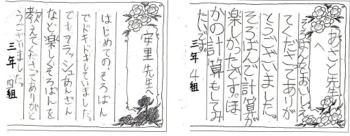 先生へ
てくださってありが
とうございました。
そろばんで計算が
楽しかったです。ほ
かの計算もしてみ
たいです。
三年4組
先生へ
はじめての、そろばん
でドキドキしていました。
でもフラッシュあんざん
など楽しくそろばんを
教えてくださりありがと
うございました。
三年四組